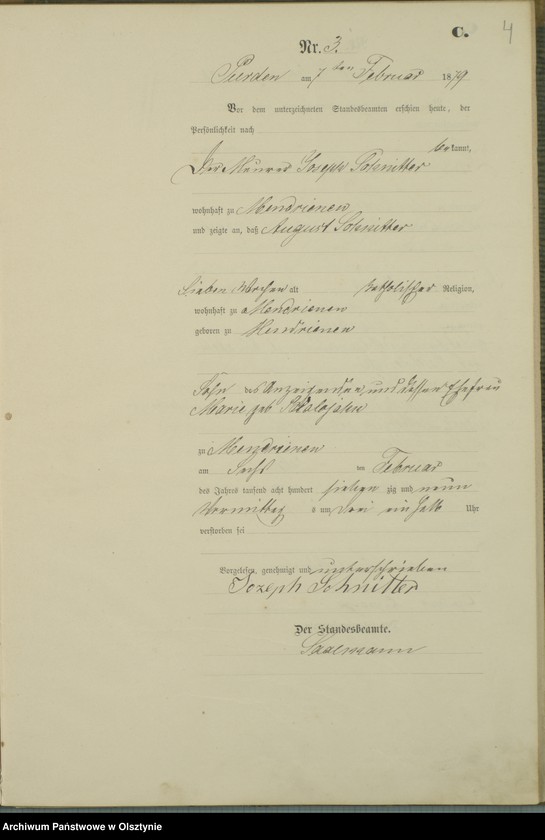 C.
4
Nr. 3.
Purden am 7ten Februar 1879
Vor dem unterzeichneten Standesbeamten erschien heute, der
Persönlichkeit nach
bekannt,
Der Maurer Joseph Schnitter
wohnhaft zu Mendrienen
und zeigte an, daß August Schnitter
sieben Wochen alt katholischer Religion,
wohnhaft zu Mendrienen
geboren zu Mendrienen
Sohn des Anzeigenden, und dessen Ehefrau
Marie geb
zu Mendrienen
am Sechs ten Februar
des Jahres tausend acht hundert sieben zig und neun
Vormittag s um drei ein halb Uhr
verstorben sei
Vorgelesen, genehmigt und unterschrieben
Jozeph Schnitter
Der Standesbeamte.
Archiwum Państwowe w Olsztynie